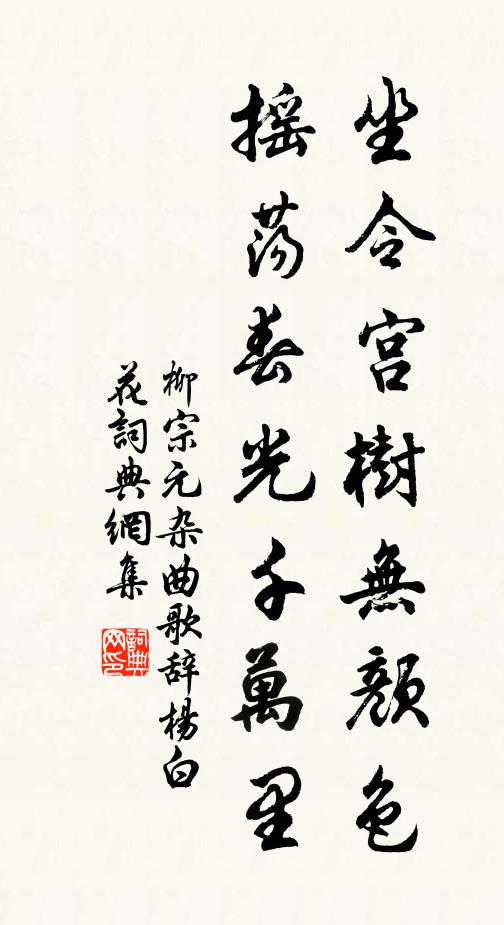 坐令宫樹無顔色
摇蕩春光千萬里
柳宗元杂曲歌辞楊白
花詞典網集
詞典
网印